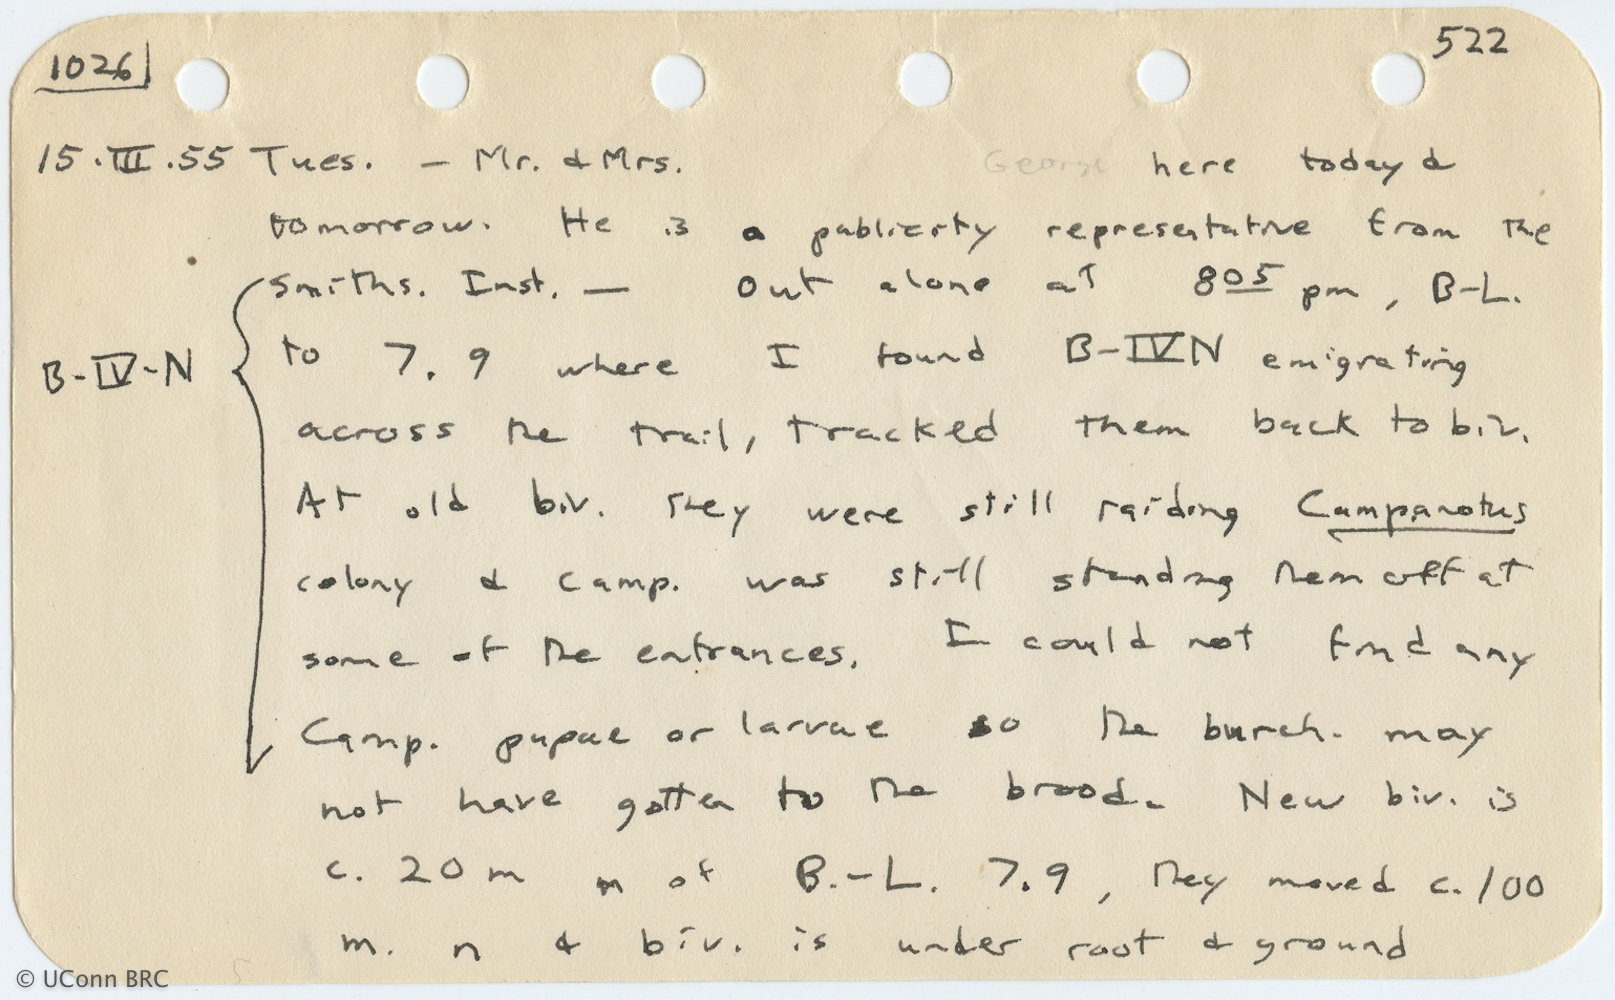 1026
522
15.III.55 Tues. – Mr. & Mrs. George here today &
tomorrow. He is a publicity representative from the
Smiths. Inst. — Out alone at 805 pm, B-L.
B-IV-N
to 7.9 where I found B-IVN emigrating
across the trail, tracked them back to biv.
At old biv. they were still raiding Camponotus
colony & camp. was still standing them off at
some of the entrances. I could not find any
Camp. pupae or larvae so the burch. may
not have gotten to the brood. New biv. is
c. 20 m n of B.-L. 7.9, they moved c. 100
m. n & biv. is under root & ground
© UConn BRC